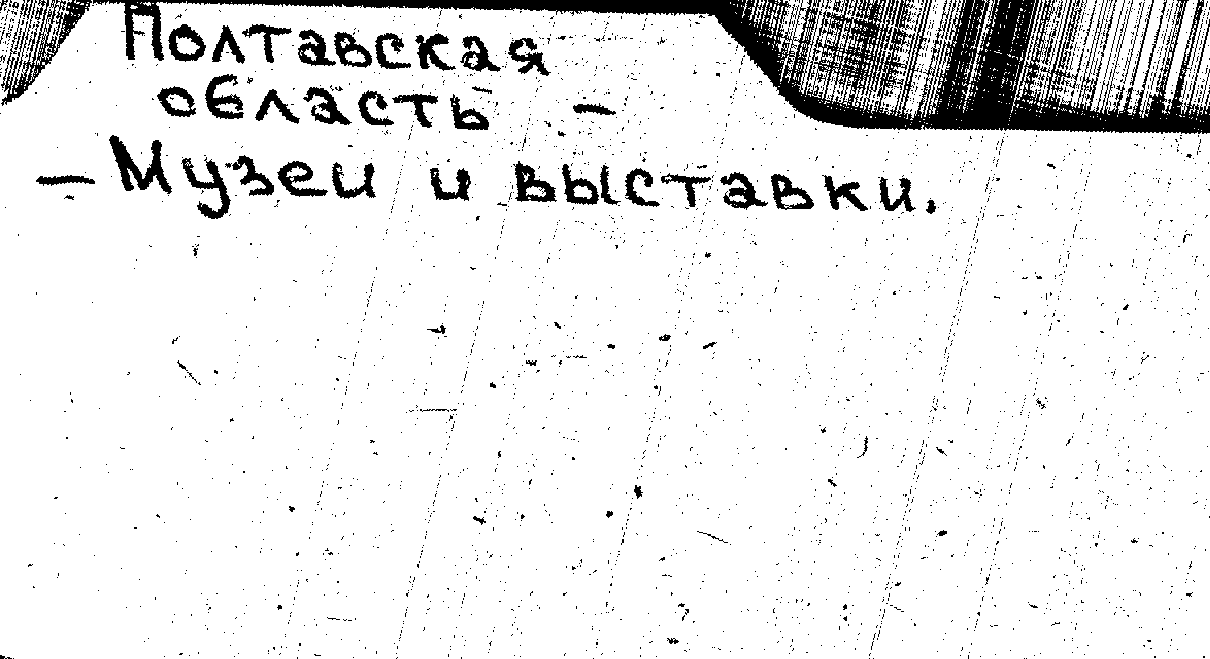 Полтавская
область –
– Музеи и выставки.